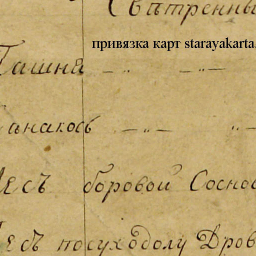 Свѣтренны
привязка карт starayakarta.
Пашня — „ — — „ —
анакосъ — „ — „ —
Лесъ боровой Сосно
Лесъ посуходолу Дров